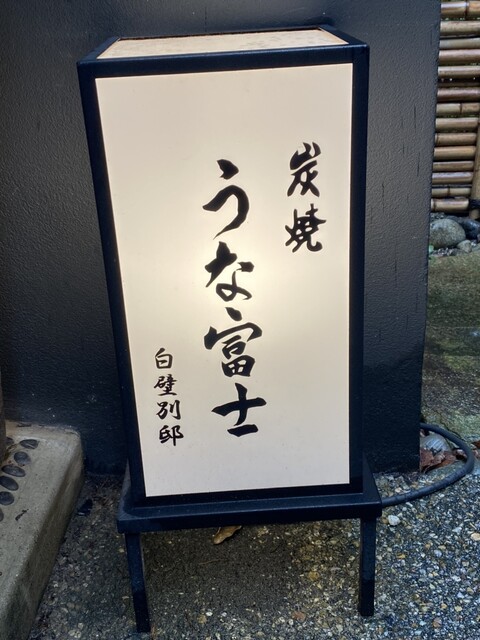 炭焼
うな富士
白壁別邸